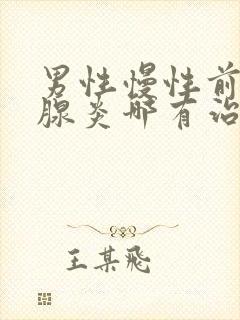 男性慢性前
腺炎哪有治
王某飛